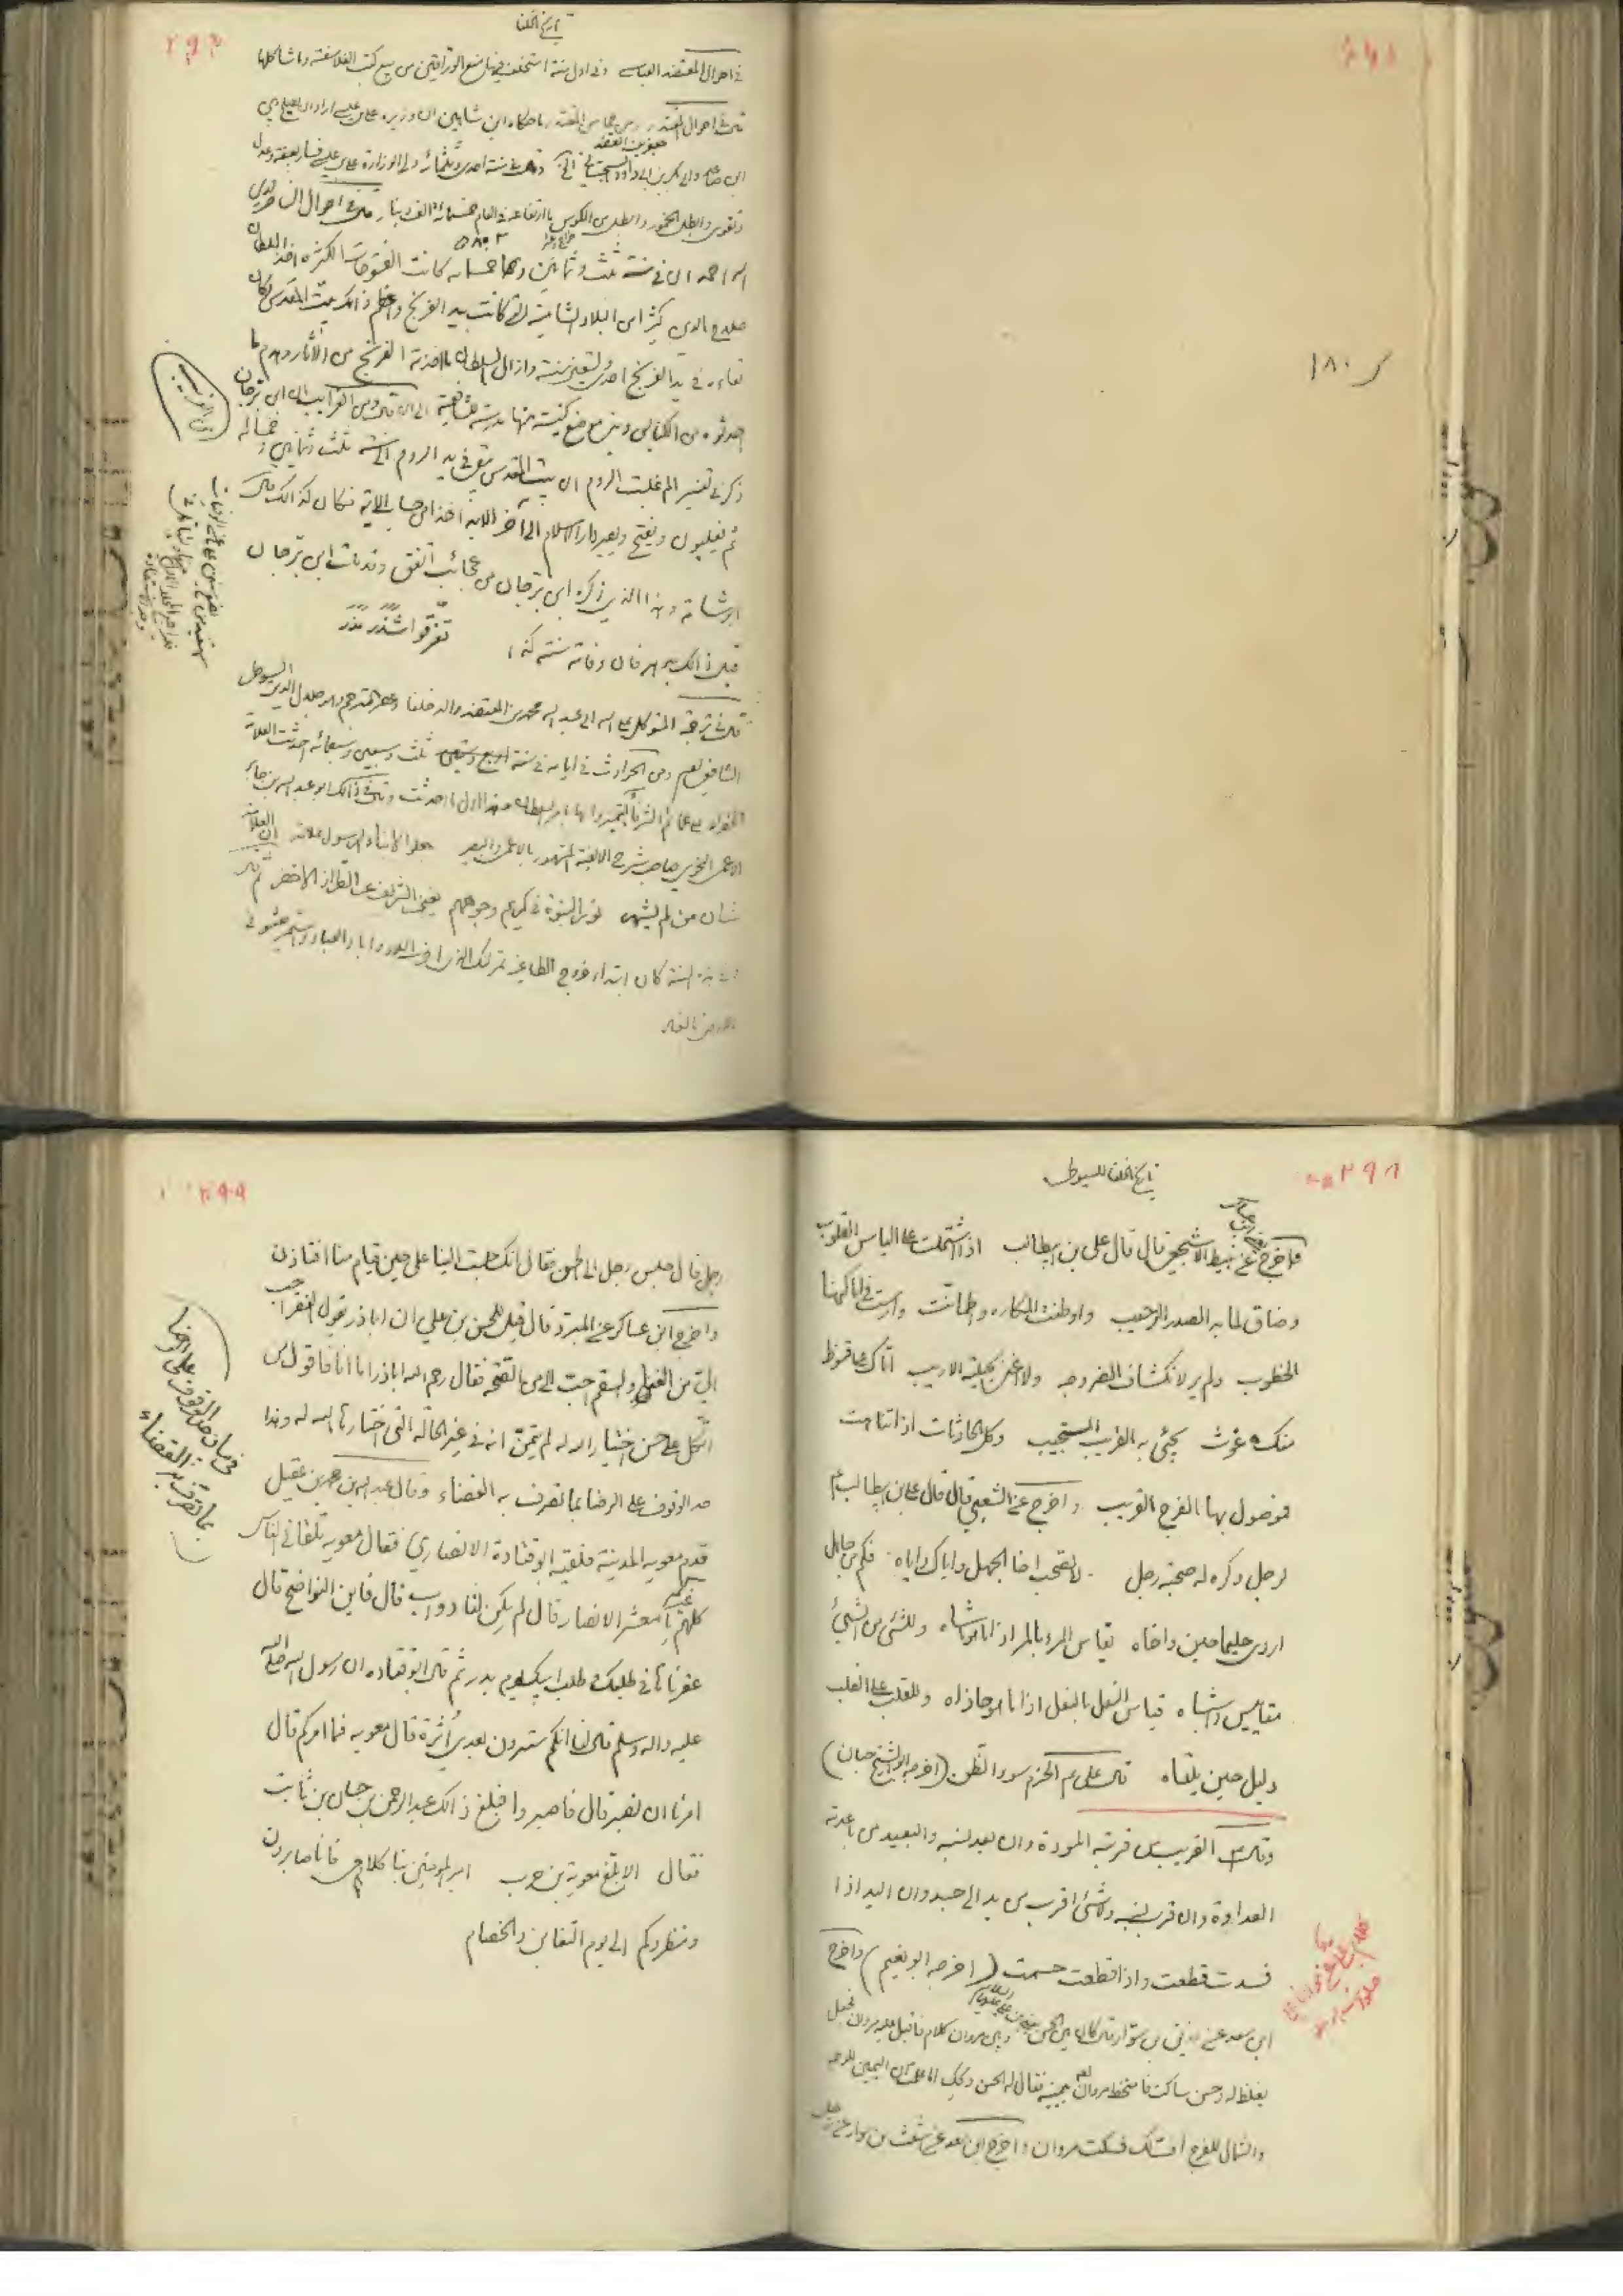 تاريخ الخلفا
في احوال المعتضد العباسي وفي اول سنة استخلف فيها منع الوراقين من بيع كتب الفلاسفة وما شاكلها
قال في احوال المقتدر ومن محاسن المقتدر ما حكاه ابن شاهين ان وزيره علي بن عيسى اراد ان يصلح بين
جعفر بن المعتضد
ابن صاعد وابي بكر بن ابي داود السجستاني الخ وقال في سنة احدى وثلثمائة ولي الوزارة علي بن عيسى فسار بعفة وعدل
وتقوى وابطل الخمور وابطل من المكوس ما ارتفاعه في العام خمسمائة الف دينار قال في احوال الناصر لدين
الله احمد ان في سنة ثلث وثمانين وخمسمائه كانت الفتوحات الكثيرة اخذ السلطان
صلاح الدين كثيرا من البلاد الشامية التي كانت بيد الفرنج واعظم ذلك بيت المقدس وكان
بقاءه في يد الفرنج احدى وتسعين سنة وازال السلطان ما احدثه الفرنج من الآثار وهدم ما
احدثوه من الكنايس وبنى موضع كنيسة منها مدرسة للشافعية الى ان قال ومن الغرايب ان ابن ترجان
ذكر في تفسير الم غلبت الروم ان بيت المقدس يبقى في يد الروم الى سنة ثلث وثمانين وخمسمائه
ثم يغلبون ويفتح ويصير دار الاسلام الى آخر الابد اخذا من حساب الاية فكان كذالك قال
ابوشامة وهذا الذي ذكره ابن ترجان من عجائب اتفق وقد مات ابن ترجان
قبل ذالك بدهر فان وفاته سنة كذا
تفرقوا شذر مذر
قال في ترجمة المتوكل على الله ابي عبد الله محمد بن المعتضد والد خلفا عصر المترجم وهو جلال الدين السيوطي
الشافعي نعم ومن الحوادث في ايامه في سنة ثلث وسبعين وسبعمائه احدثت العلامة
الخضراء على عمائم الشرفا ليتميزوا بها بامر السلطان وهذا اول ما احدثت وقال في ذالك ابو عبد الله بن جابر
الاعمى النحوي صاحب شرح الالفية المشهور بالاعمى والبصير جعلوا لابناء الرسول علامة ان العلامة
شان من لم يشهر نور النبوة في كريم وجوههم يغني الشريف عن الطراز الاخضر ثم قال
وفي هذه السنة كان ابتداء خروج الطاغية تمرلنك الذي اخرب البلاد واباد العباد واستمر يعثو في
الارض بالفساد
١٨٠
تاريخ الخلفا للسيوطي
٢٩٨
فاخرج عن نبيط الاشجعي قال قال علي بن ابيطالب اذا اشتملت على الياس القلوب
وضاق لما به الصدر الرحيب واوطنت المكاره واطمانت وارست في اماكنها
الخطوب ولم ير لانكشاف الضر وجه ولا اغنى بحيلته الاريب اتاك على قنوط
منك غوث يجيئ به القريب المستجيب وكل الحادثات اذا تناهت
فموصول بها الفرج القريب واخرج عن الشعبي قال قال علي بن ابيطالب ع
لرجل وكره له صحبة رجل لا تصحب اخا الجهل واياك واياه فكم من جاهل
اردى حليما حين واخاه يقاس المرء بالمرء اذا ما هو ماشاه وللشئ من الشيئ
مقاييس واشباه قياس النعل بالنعل اذا ما هو حاذاه وللقلب على القلب
دليل حين يلقاه قال علي ع الحزم سوء الظن (اخرجه ابوالشيخ حبان)
وقال ع القريب من قربته المودة وان بعد نسبه والبعيد من باعدته
العداوة وان قرب نسبه ولا شئ اقرب من يد الى جسد وان اليد اذا
فسدت قطعت واذا قطعت حسمت (اخرجه ابو نعيم) واخرج
ابن سعد عن رزيق بن سوار قال كان بين الحسن بن علي عليهما السلام وبين مروان كلام فاقبل عليه مروان فجعل
يغلظ له وحسن ساكت فامتخط مروان بيمينه فقال له الحسن ويحك اما علمت ان اليمين للوجه
والشمال للفرج اف لك فسكت مروان واخرج ابن سعد عن اشعث بن سوار عن رجل
٢٩٩
رجل قال جلس رجل الى الحسن فقال انك جلست الينا على حين قيام منا افتاذن
واخرج ابن عساكر عن المبرد قال قيل للحسن بن علي ان اباذر يقول الفقر احب
الي من الغنى والسقم احب الي من الصحة فقال رحم الله اباذر اما انا فاقول من
اتكل على حسن اختيار الله له لم يتمن انه في غير الحالة التي اختارها الله له وهذا
حد الوقوف على الرضا بما تصرف به القضاء وقال عبد الله بن محمد بن عقيل
قدم معويه المدينة فلقيه ابو قتادة الانصاري فقال معويه تلقاني الناس
كلهم غيركم يا معشر الانصار قال لم يكن لنا دواب قال فاين النواضح قال
عقرناها في طلبك وطلب ابيك يوم بدر ثم قال ابو قتاده ان رسول الله صلى الله
عليه واله وسلم قال لنا انكم سترون بعدي أثرة قال معويه فما امركم قال
امرنا ان نصبر قال فاصبروا فبلغ ذالك عبد الرحمن بن حسان بن ثابت
فقال الا ابلغ معوية بن حرب امير المؤمنين بنا كلامي فانا صابرون
ومنظروكم الى يوم التغابن والخصام
في بيان حد الوقوف على الرضا
بما تصرف به القضاء